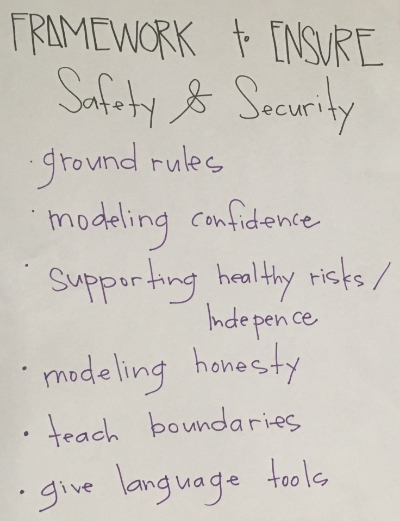 FRAMEWORK to ENSURE
Safety & Security
· ground rules
· modeling confidence
· supporting healthy risks/
Indepence
· modeling honesty
· teach boundaries
· give language tools